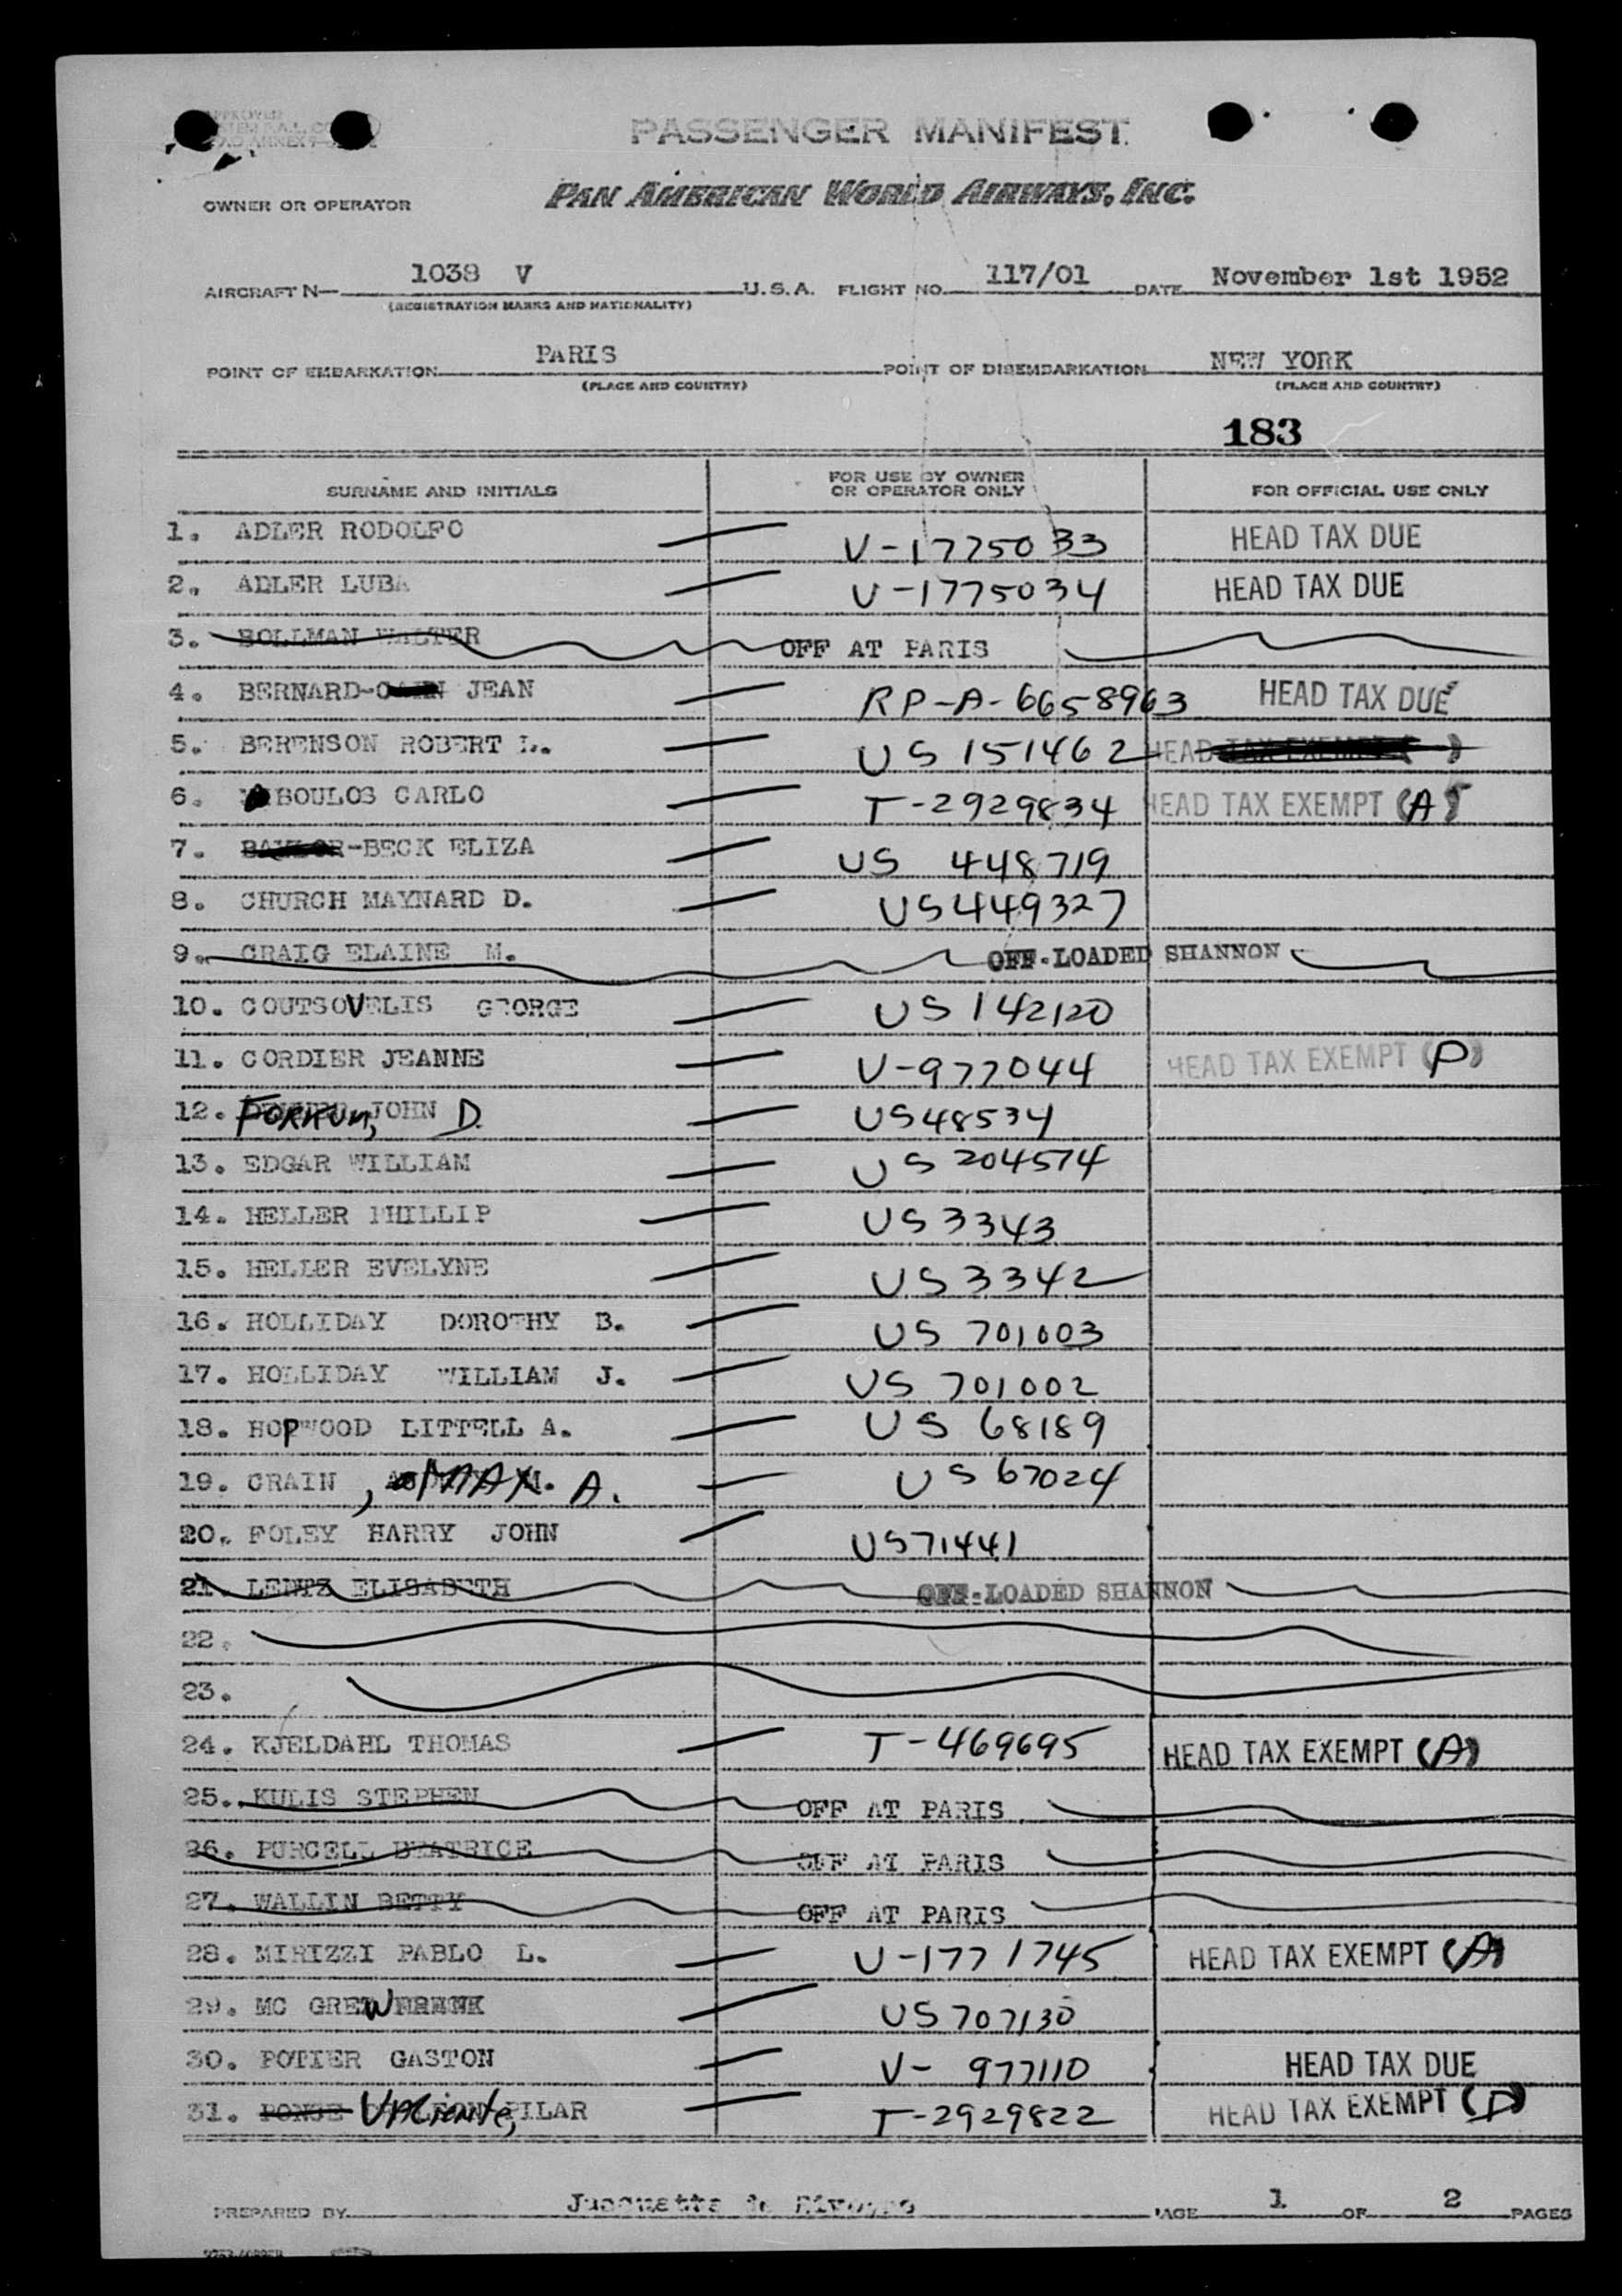 PASSENGER MANIFEST
OWNER OR OPERATOR PAN AMERICAN WORLD AIRWAYS, INC.
AIRCRAFT N— 1038 V U.S.A. FLIGHT NO. 117/01 DATE November 1st 1952
(REGISTRATION MARKS AND NATIONALITY)
POINT OF EMBARKATION PARIS POINT OF DISEMBARKATION NEW YORK
(PLACE AND COUNTRY) (PLACE AND COUNTRY)
183
SURNAME AND INITIALS FOR USE BY OWNER OR OPERATOR ONLY FOR OFFICIAL USE ONLY
1. ADLER RODOLFO V-1775033 HEAD TAX DUE
2. ADLER LUBA V-1775034 HEAD TAX DUE
3. BOLLMAN WALTER OFF AT PARIS
4. BERNARD- JEAN RP-A-6658963 HEAD TAX DUE
5. BERENSON ROBERT L. US 151462 HEAD TAX EXEMPT ( )
6. BOULOS CARLO T-2929834 HEAD TAX EXEMPT (A)
7. -BECK ELIZA US 448719
8. CHURCH MAYNARD D. US449327
9. CRAIG ELAINE M. OFF-LOADED SHANNON
10. COUTSOVELIS GEORGE US 142120
11. CORDIER JEANNE V-977044 HEAD TAX EXEMPT (P)
12. FORKUM, JOHN D. US48534
13. EDGAR WILLIAM US 204574
14. HELLER PHILLIP US3343
15. HELLER EVELYNE US3342
16. HOLLIDAY DOROTHY B. US 701003
17. HOLLIDAY WILLIAM J. US 701002
18. HOPWOOD LITTELL A. US 68189
19. CRAIN , MAX. A. US 67024
20. FOLEY HARRY JOHN US71441
21. LENTZ ELISABETH OFF-LOADED SHANNON
22.
23.
24. KJELDAHL THOMAS T-469695 HEAD TAX EXEMPT (A)
25. KULIS STEPHEN OFF AT PARIS
26. PURCELL BEATRICE OFF AT PARIS
27. WALLIN BETTY OFF AT PARIS
28. MIRIZZI PABLO L. V-1771745 HEAD TAX EXEMPT (A)
29. MC GREW US707130
30. POTIER GASTON V- 977110 HEAD TAX DUE
31. PONSE Valiente, PILAR T-2929822 HEAD TAX EXEMPT (D)
PREPARED BY PAGE 1 OF 2 PAGES